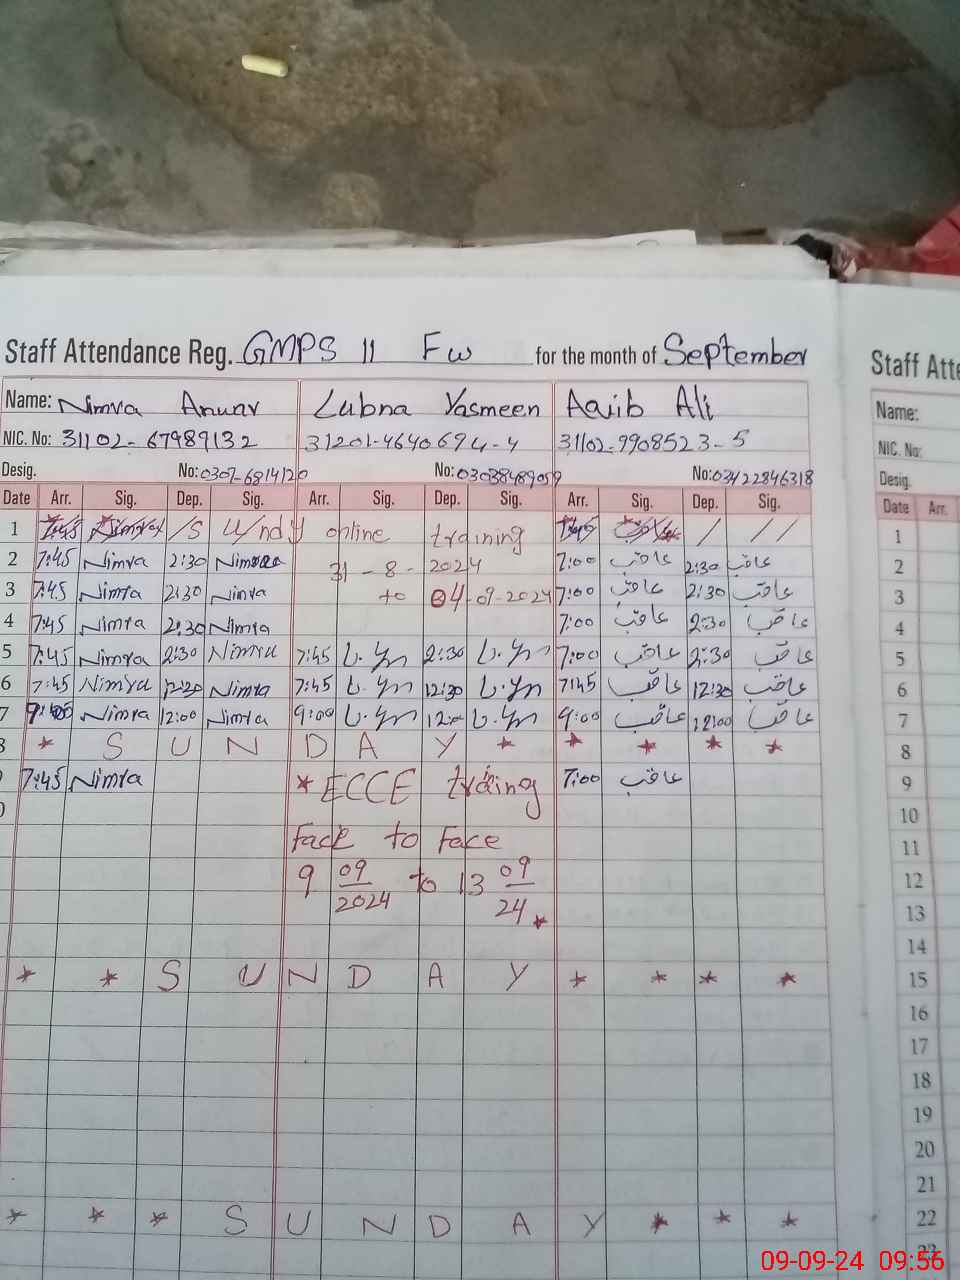 Staff Attendance Reg. GMPS 11 Fw for the month of September Staff Atte
Name: Nimra Anwar Lubna Yasmeen Aaiib Ali Name:
NIC. No: 31102-67989132 31201-4640694-4 31102-9908523-5 NIC. No:
Desig. No: 0307-6814120 No: 03038489059 No: 03422846318 Desig.
Date Arr. Sig. Dep. Sig. Arr. Sig. Dep. Sig. Arr. Sig. Dep. Sig. Date Arr.
1 7:45 Nimra /S U/nd/y online training 7:45 / / / 1
2 7:45 Nimra 2:30 Nimra 31-8-2024 7:00 عاقب 2:30 عاقب 2
3 7:45 Nimra 2:30 Nimra to 04-09-2024 7:00 عاقب 2:30 عاقب 3
4 7:45 Nimra 2:30 Nimra 7:00 عاقب 2:30 عاقب 4
5 7:45 Nimra 2:30 Nimra 7:45 2:30 7:00 عاقب 2:30 عاقب 5
6 7:45 Nimra 12:30 Nimra 7:45 12:30 7:45 عاقب 12:30 عاقب 6
7 9:00 Nimra 12:00 Nimra 9:00 12:0 9:00 عاقب 12:00 عاقب 7
8 * S U N D A Y * * * * * 8
7:45 Nimra * ECCE training 7:00 عاقب 9
0 10
Face to Face 11
9 09/2024 to 13 09/24 * 12
13
14
* * S U N D A Y * * * * 15
16
17
18
19
20
21
* * * S U N D A Y * * * 22
23
09-09-24 09:56